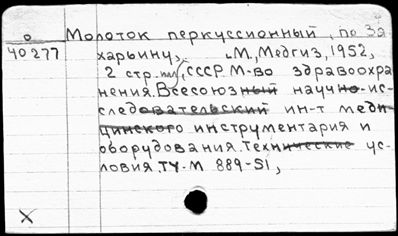 о Молоток перкуссионный, по За
40277 харьину,. М., Медгиз, 1952,
2 стр. илл, СССР. М-во здравоохра
нения. Всесоюзный научно-ис-
следовательский ин-т меди
цинского инструментария и
оборудования. Технические ус-
ловия. ТУ-М 889-51,
X